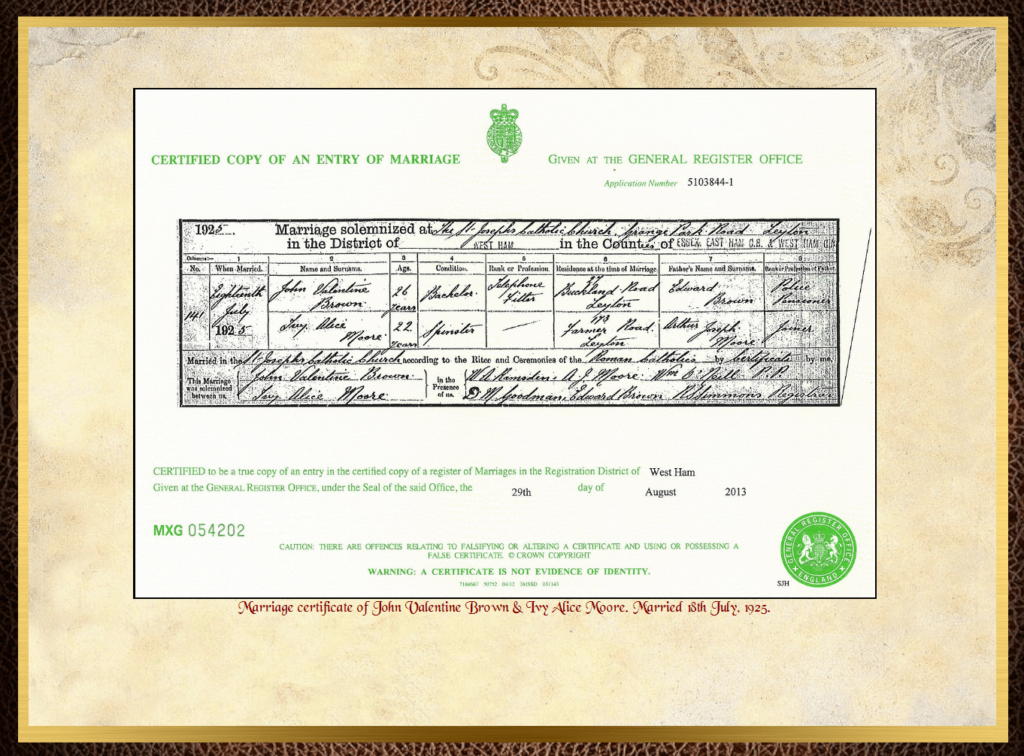 CERTIFIED COPY OF AN ENTRY OF MARRIAGE
GIVEN AT THE GENERAL REGISTER OFFICE
Application Number 5103844-1
1925. Marriage solemnized at The St. Josephs Catholic Church, Grange Park Road Leyton
in the District of WEST HAM in the Counties of ESSEX, EAST HAM C.B. & WEST HAM C.B.
1 2 3 4 5 6 7 8
No. When Married. Name and Surname. Age. Condition. Rank or Profession. Residence at the time of Marriage. Father's Name and Surname. Rank or Profession of Father.
141 Eighteenth July 1925 John Valentine Brown 26 years Bachelor Telephone Fitter Buckland Road Leyton Edward Brown Police Pensioner
Ivy Alice Moore 22 years Spinster — 173 Farmer Road. Leyton Arthur Joseph Moore Joiner
Married in the St. Josephs Catholic Church according to the Rites and Ceremonies of the Roman Catholics by Certificate by me,
This Marriage was solemnized between us, John Valentine Brown
Ivy Alice Moore
in the Presence of us, W A Ramsden. A J Moore. Wm O'Neill P.P.
M Goodman, Edward Brown Simmons Registrar
CERTIFIED to be a true copy of an entry in the certified copy of a register of Marriages in the Registration District of West Ham
Given at the GENERAL REGISTER OFFICE, under the Seal of the said Office, the 29th day of August 2013
MXG 054202
CAUTION: THERE ARE OFFENCES RELATING TO FALSIFYING OR ALTERING A CERTIFICATE AND USING OR POSSESSING A
FALSE CERTIFICATE. © CROWN COPYRIGHT
WARNING: A CERTIFICATE IS NOT EVIDENCE OF IDENTITY.
GENERAL REGISTER OFFICE
ENGLAND
SJH
Marriage certificate of John Valentine Brown & Ivy Alice Moore. Married 18th July, 1925.